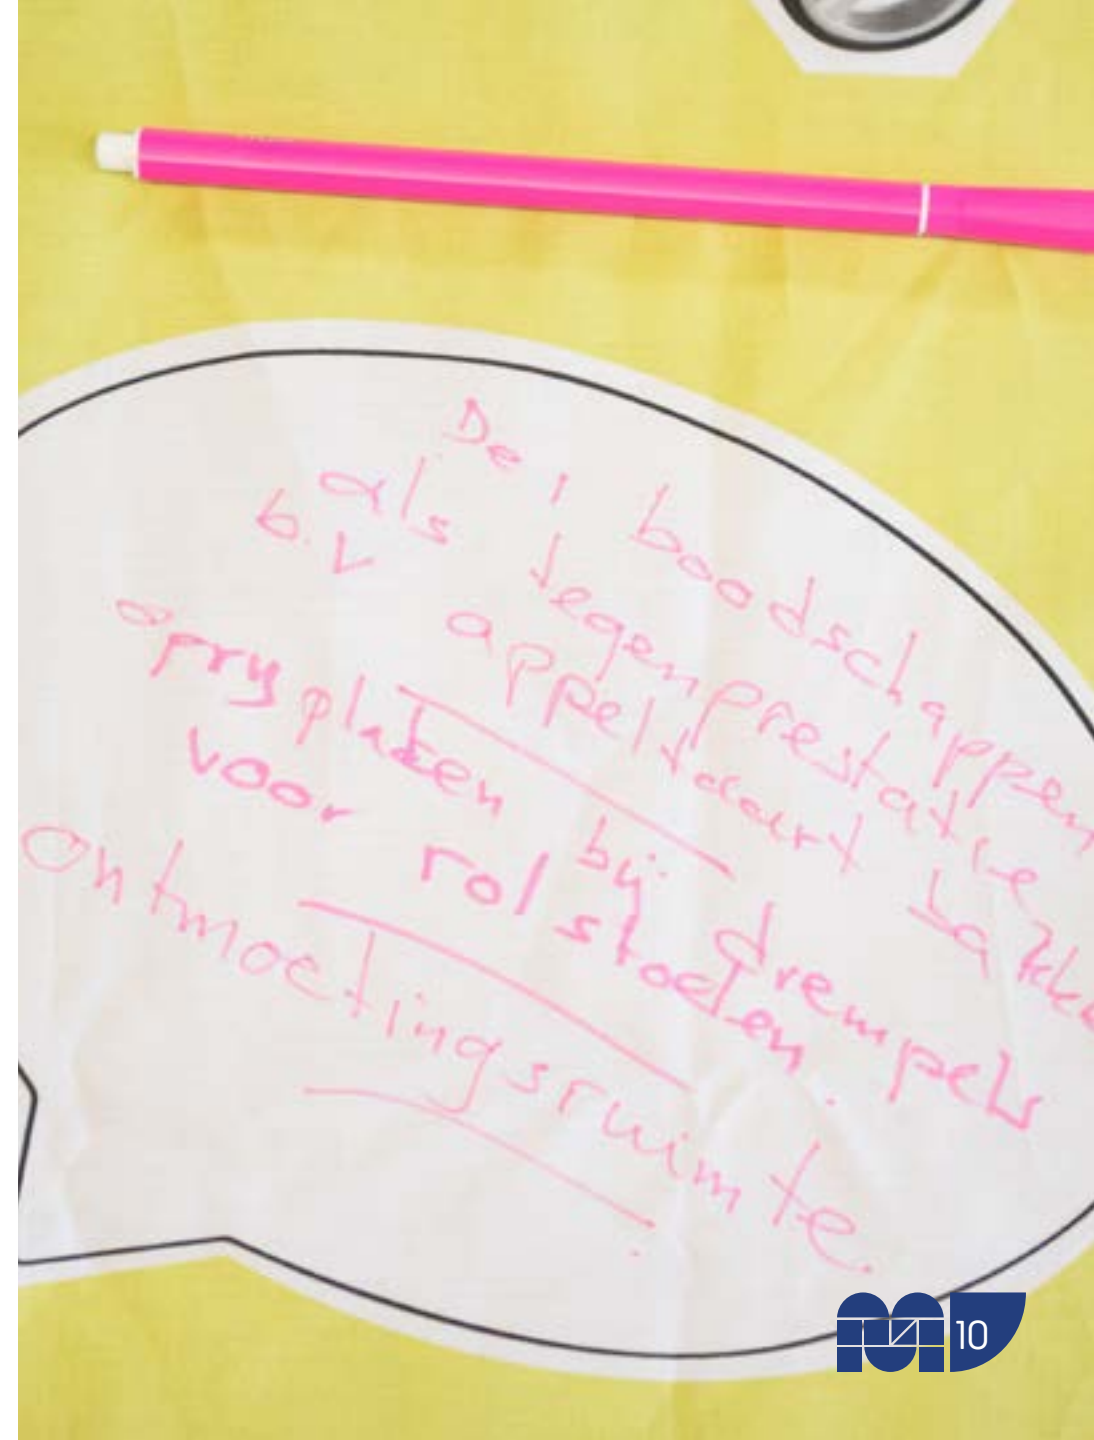 De 1 boodschappen
als tegenprestatie
b.v appeltaart bakke
opry platen bij drempels
voor rolstoelen.
Ontmoetingsruimte.
10